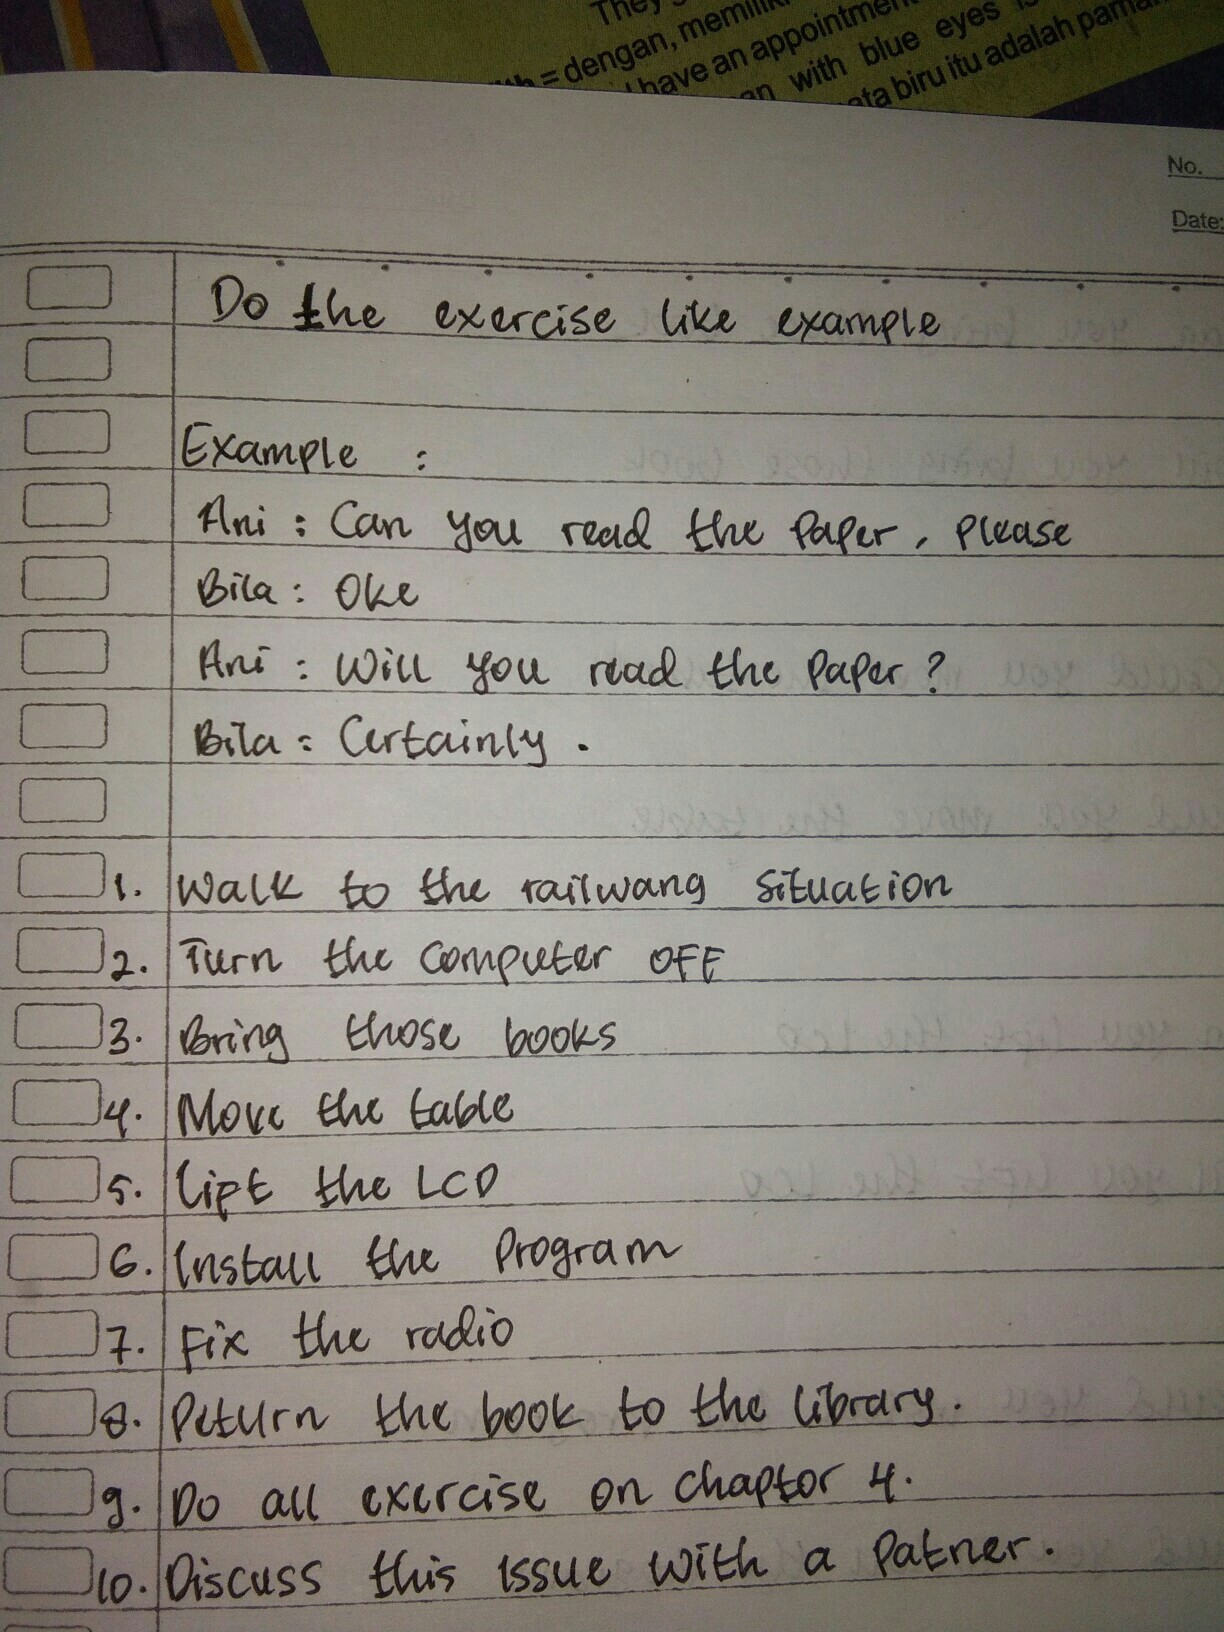 They
= dengan, memiliki
have an appointment
with blue eyes is
ata biru itu adalah paman
No.
Date:
Do the exercise like example
Example :
Ani : Can you read the Paper, Please
Bila : Oke
Ani : Will you read the Paper ?
Bila : Certainly .
1. Walk to the railwang Situation
2. Turn the Computer OFF
3. Bring those books
4. Move the table
5. Lipt the LCD
6. Install the Program
7. Fix the radio
8. Return the book to the library.
9. Do all exercise on Chaptor 4.
10. Discuss this Issue With a Patner.